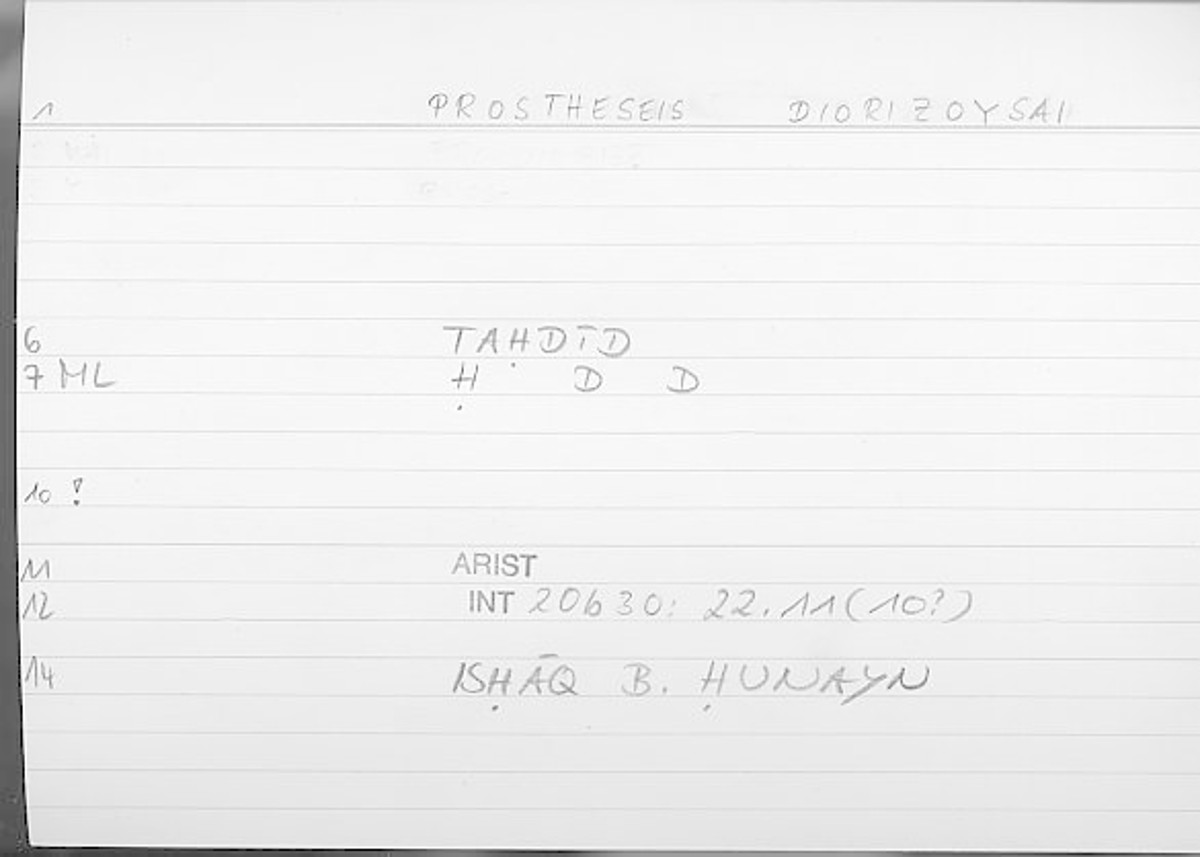 1 PROSTHESEIS DIORIZOYSAI
6 TAḤDĪD
7 ML Ḥ D D
10 !
11 ARIST
12 INT 20b30: 22.11(10?)
14 ISḤĀQ B. ḤUNAYN